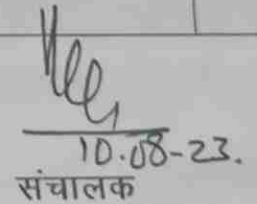 10.08-23.
संचालक